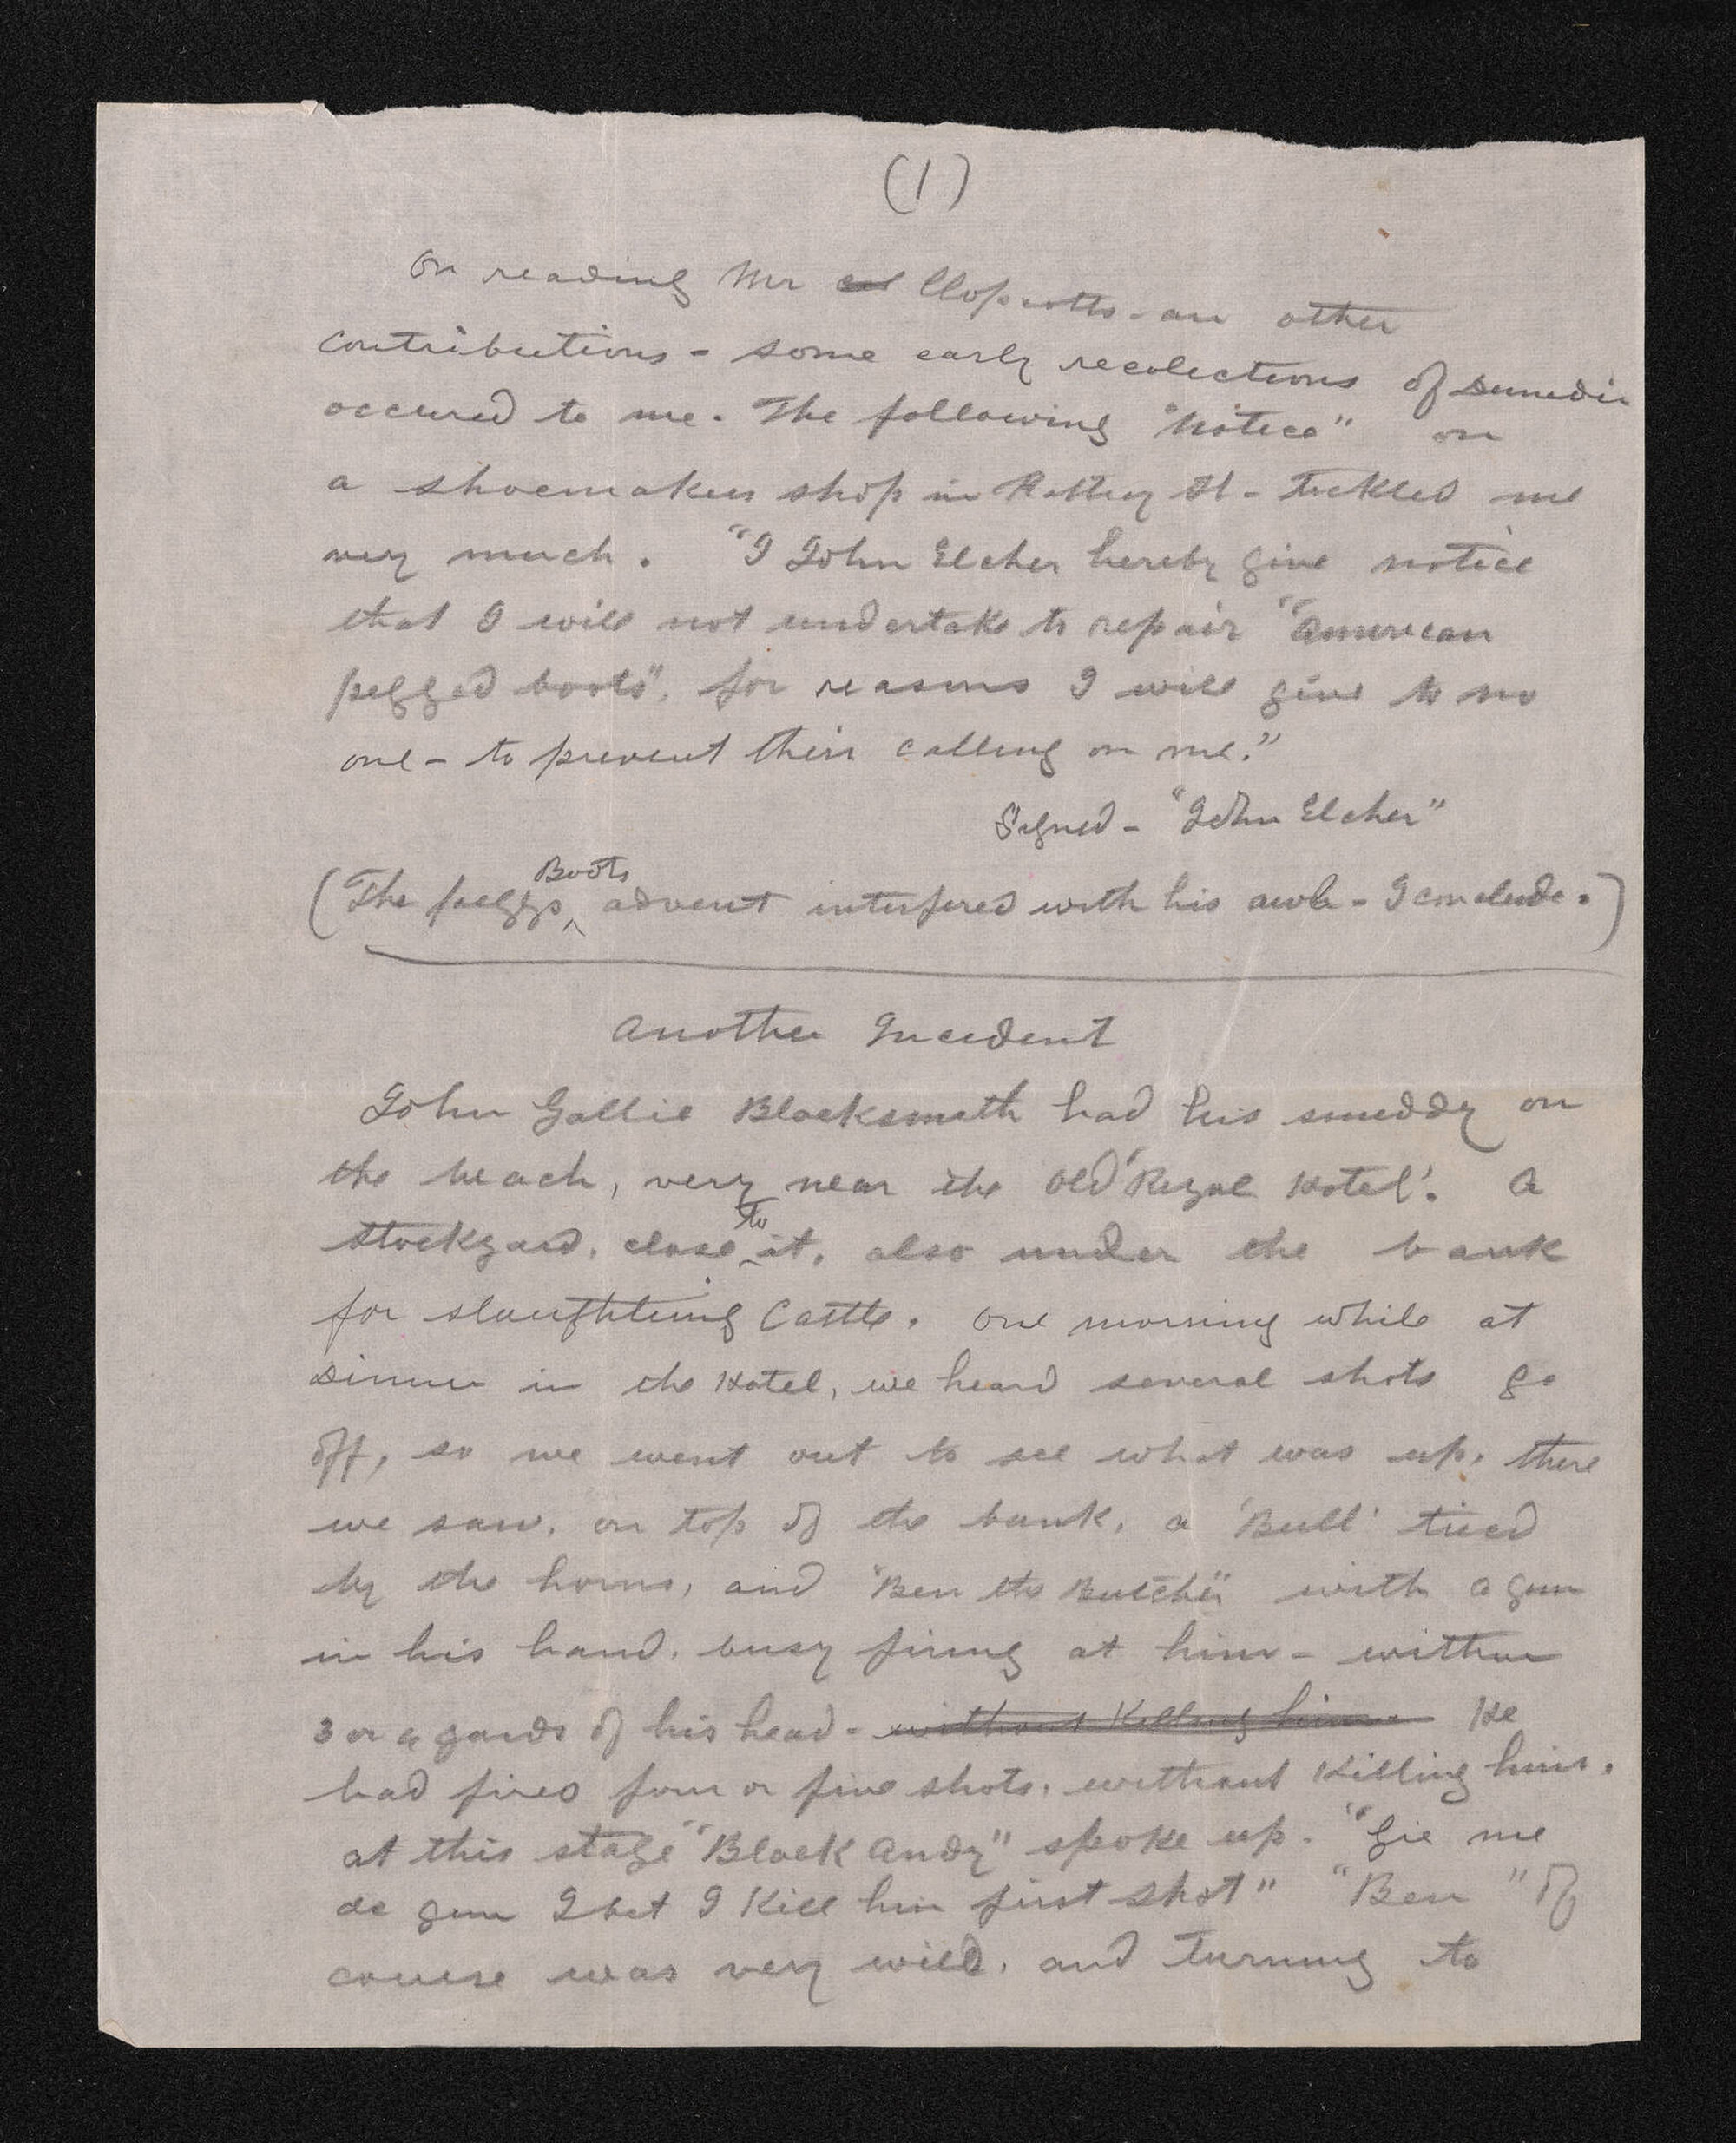 (1)
On reading Mr Clapcotts - an other
contributions - some early recolections of Dunedin
occured to me. The following "Notice" on
a shoemakers shop in Rattray St - tickled me
very much. "I John Elcher hereby give notice
that I will not undertake to repair "American
pegged boots", for reasons I will give to no
one - to prevent their calling on me."
Signed - "John Elcher"
Boots
(The peggs advent interfered with his awls - I conclude.)
Another Incedent
John Gallie Blacksmith had his smeddy on
the beach, very near the old 'Royal Hotel'. A
to
stockyard, close it, also under the bank
for slaughtering Cattle. One morning while at
Dinner in the Hotel, we heard several shots go
off, so we went out to see what was up, there
we saw, on top of the bank, a 'Bull' tied
by the horns, and "Ben the Butcher" with a gun
in his hand, busy firing at him - within
3 or 4 yards of his head - without Killing him - He
had fired four or five shots, without Killing him.
at this stage "Black Andy" spoke up. "Gie me
de gun I bet I Kill him first shot" "Ben" of
course was very wild, and turning to